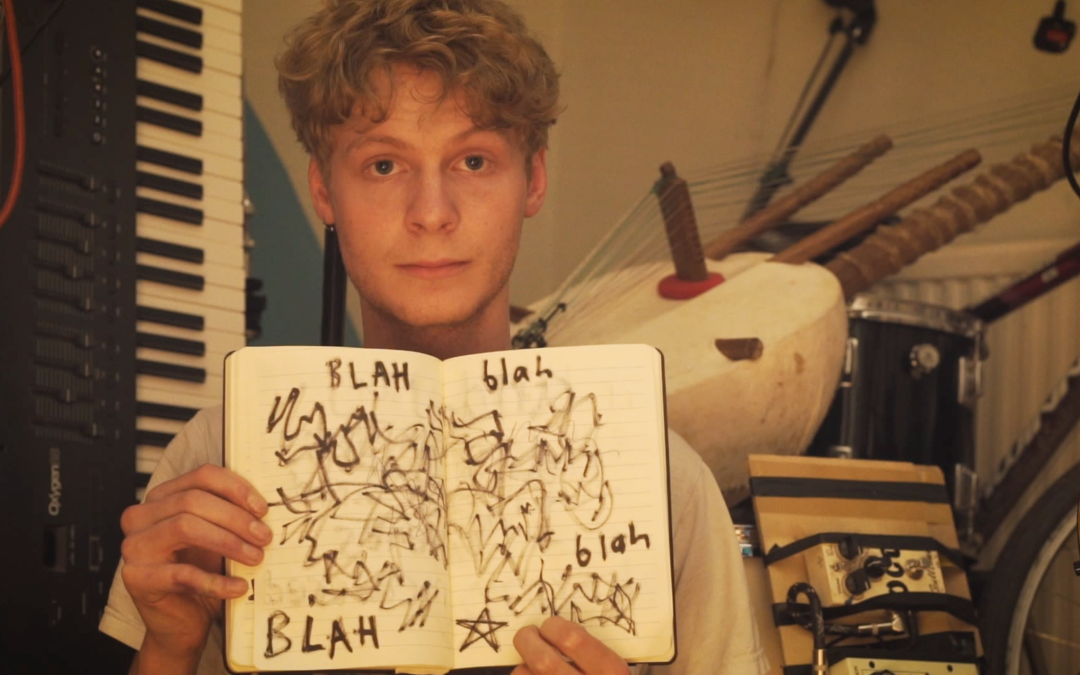 BLAH
blah
blah
BLAH
Oxygen